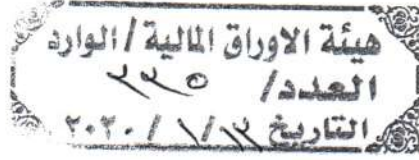 هيئة الاوراق المالية / الوارد
العدد/
التاريخ / ١ / ٢٠٢٠